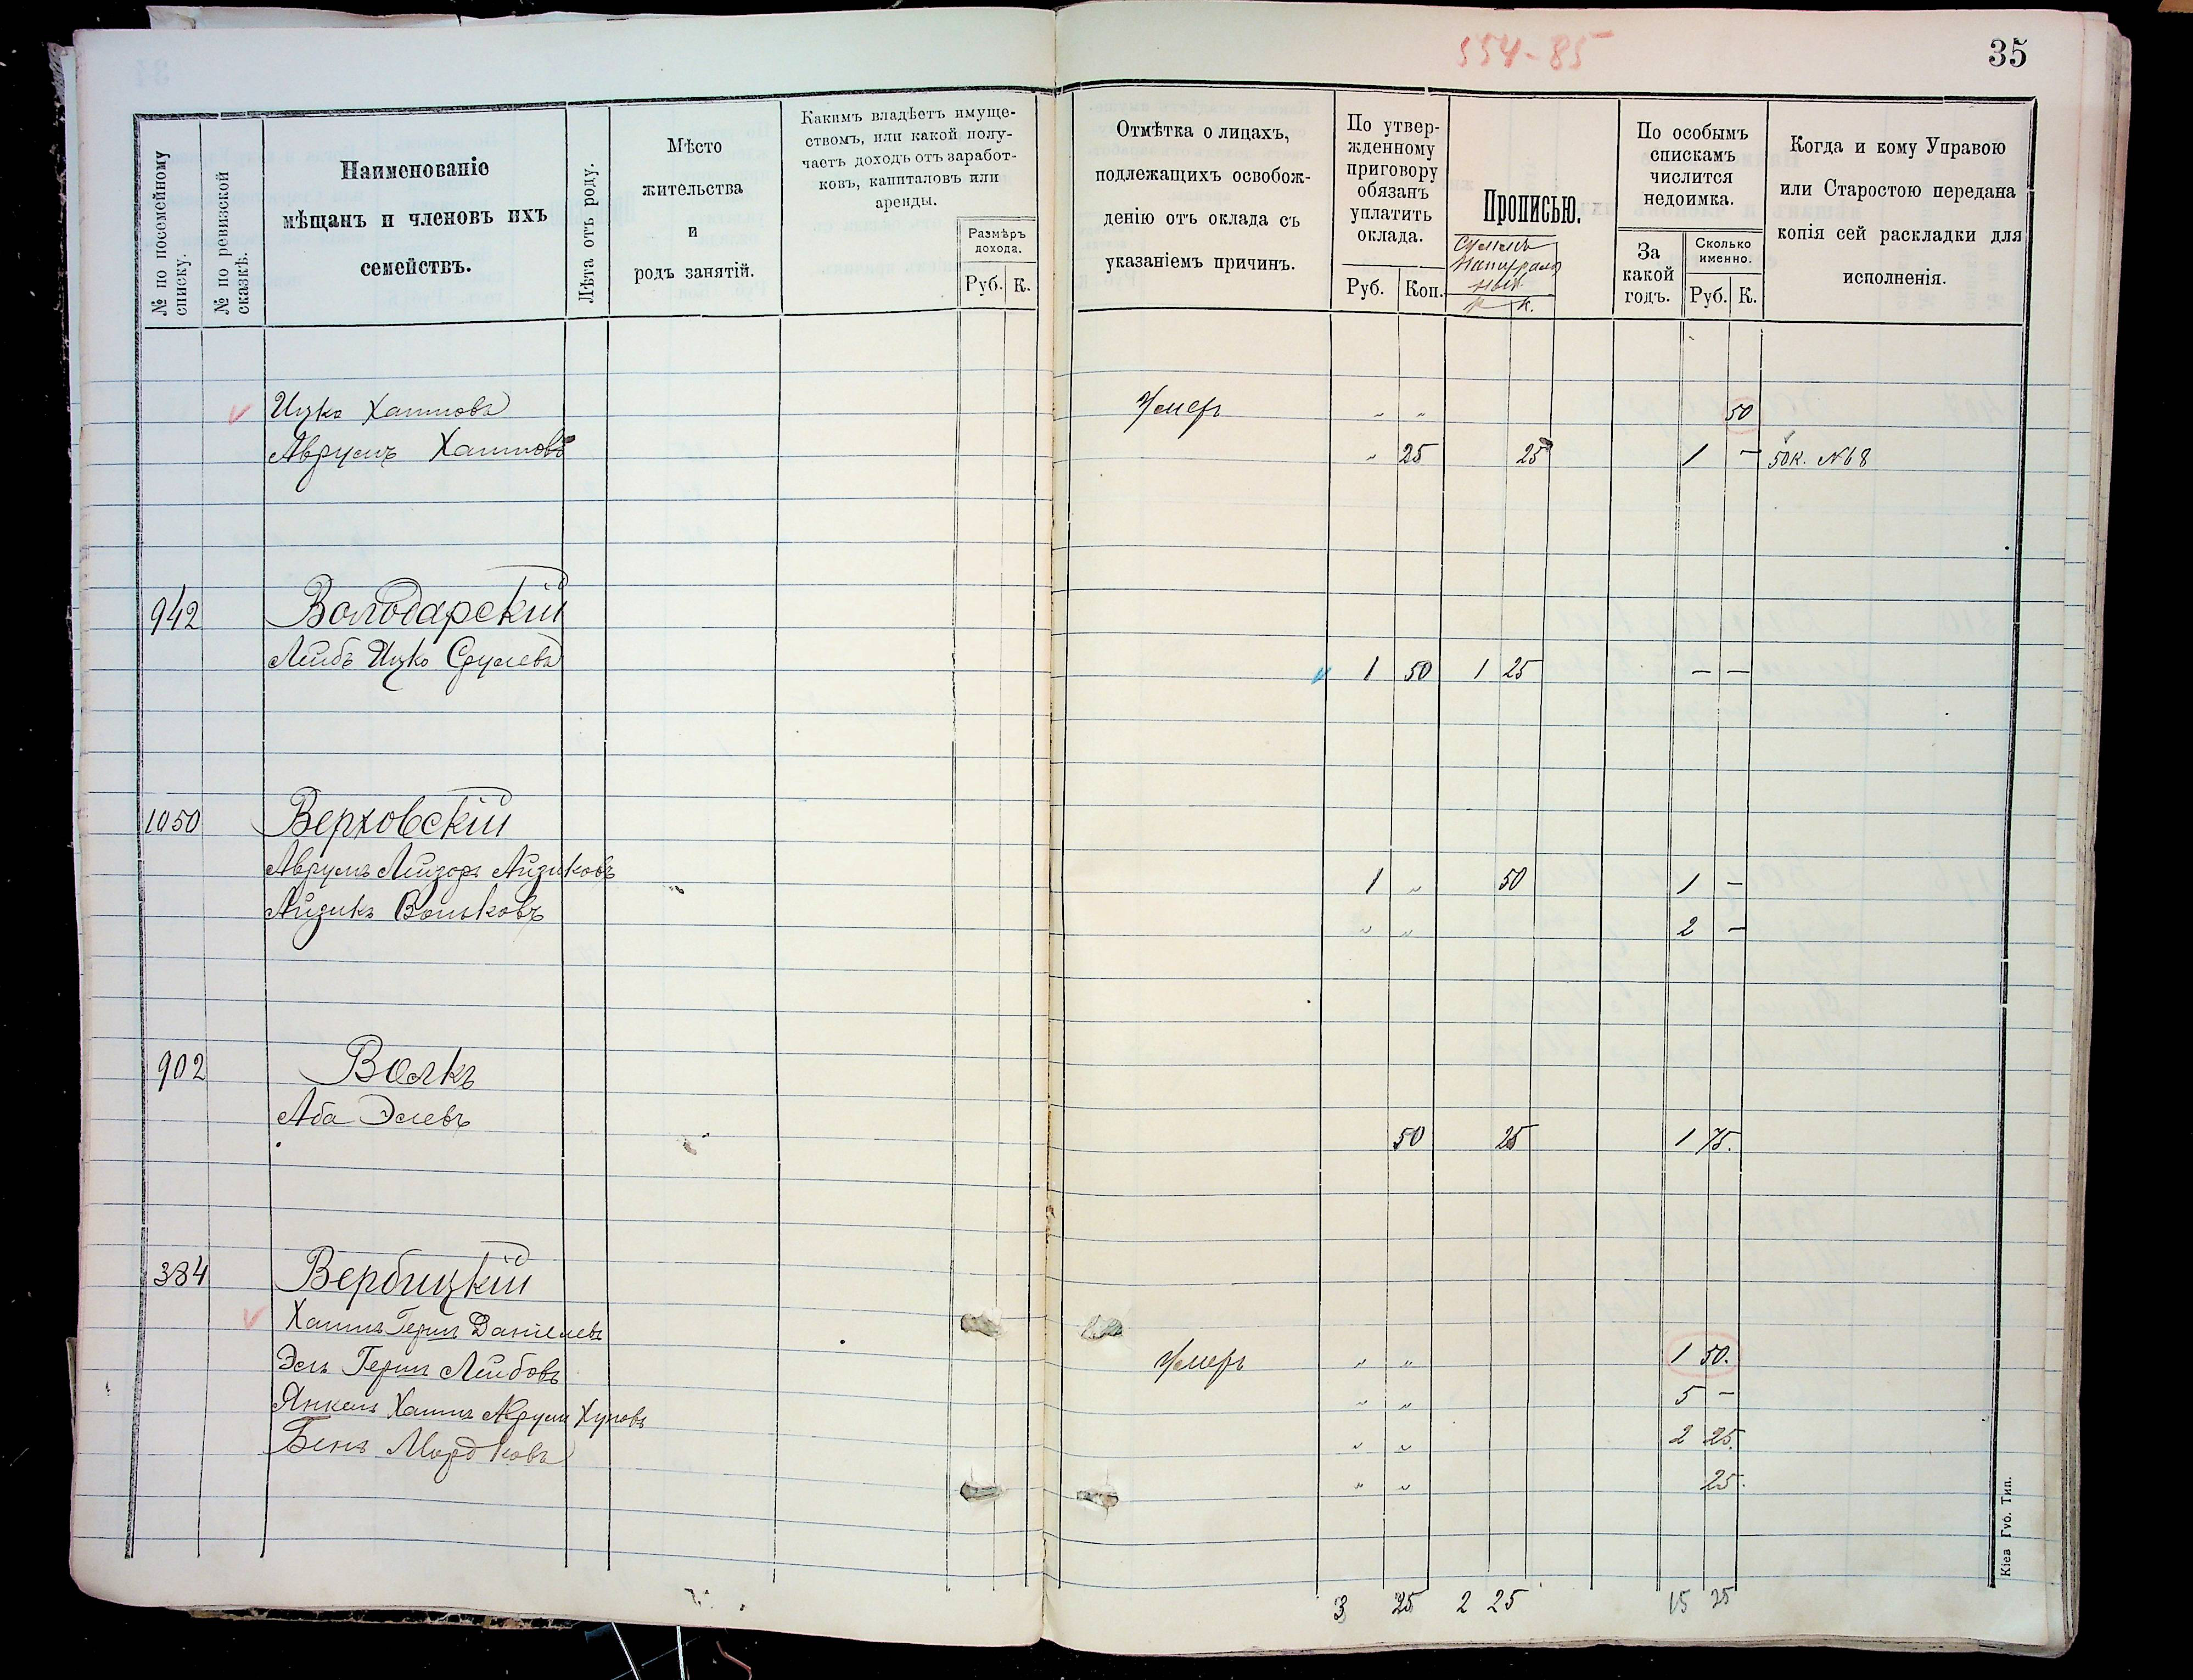 554-85
35
№ по посемейному списку.
№ по ревизской сказкѣ.
Наименованіе
мѣщанъ и членовъ ихъ
семействъ.
Лѣта отъ роду.
Мѣсто
жительства
и
родъ занятій.
Какимъ владѣетъ имуще-
ствомъ, или какой полу-
чаетъ доходъ отъ заработ-
ковъ, капиталовъ или
аренды.
Размѣръ
дохода.
Руб. К.
Отмѣтка о лицахъ,
подлежащихъ освобож-
денію отъ оклада съ
указаніемъ причинъ.
По утвер-
жденному
приговору
обязанъ
уплатить
оклада.
Руб. Коп.
Прописью.
р к.
По особымъ
спискамъ
числится
недоимка.
За
какой
годъ.
Сколько
именно.
Руб. К.
Когда и кому Управою
или Старостою передана
копія сей раскладки для
исполненія.
Ицко Хаимовъ Умеръ " " 50
Аврумъ Хаимовъ " 25 25 1 - 50к. №68
942 Володарскій
Лейбъ Ицко Срулевъ 1 50 1 25 - -
1050 Верховскій
Аврумъ Лейзоръ Айзиковъ 1 " 50 1 -
Айзикъ Вольковъ " " 2 -
902 Волкъ
Аба Элевъ 50 25 1 75.
384 Вербицкій
Хаимъ Герш Даніелевъ
Эль Герш Лейбовъ Умеръ " " 1 50.
Янкель Хаимъ Аврум " " 5 -
Бенъ Мордковъ " " 2 25.
" " 25.
3 25 2 25 15 25
Кіев Губ. Тип.